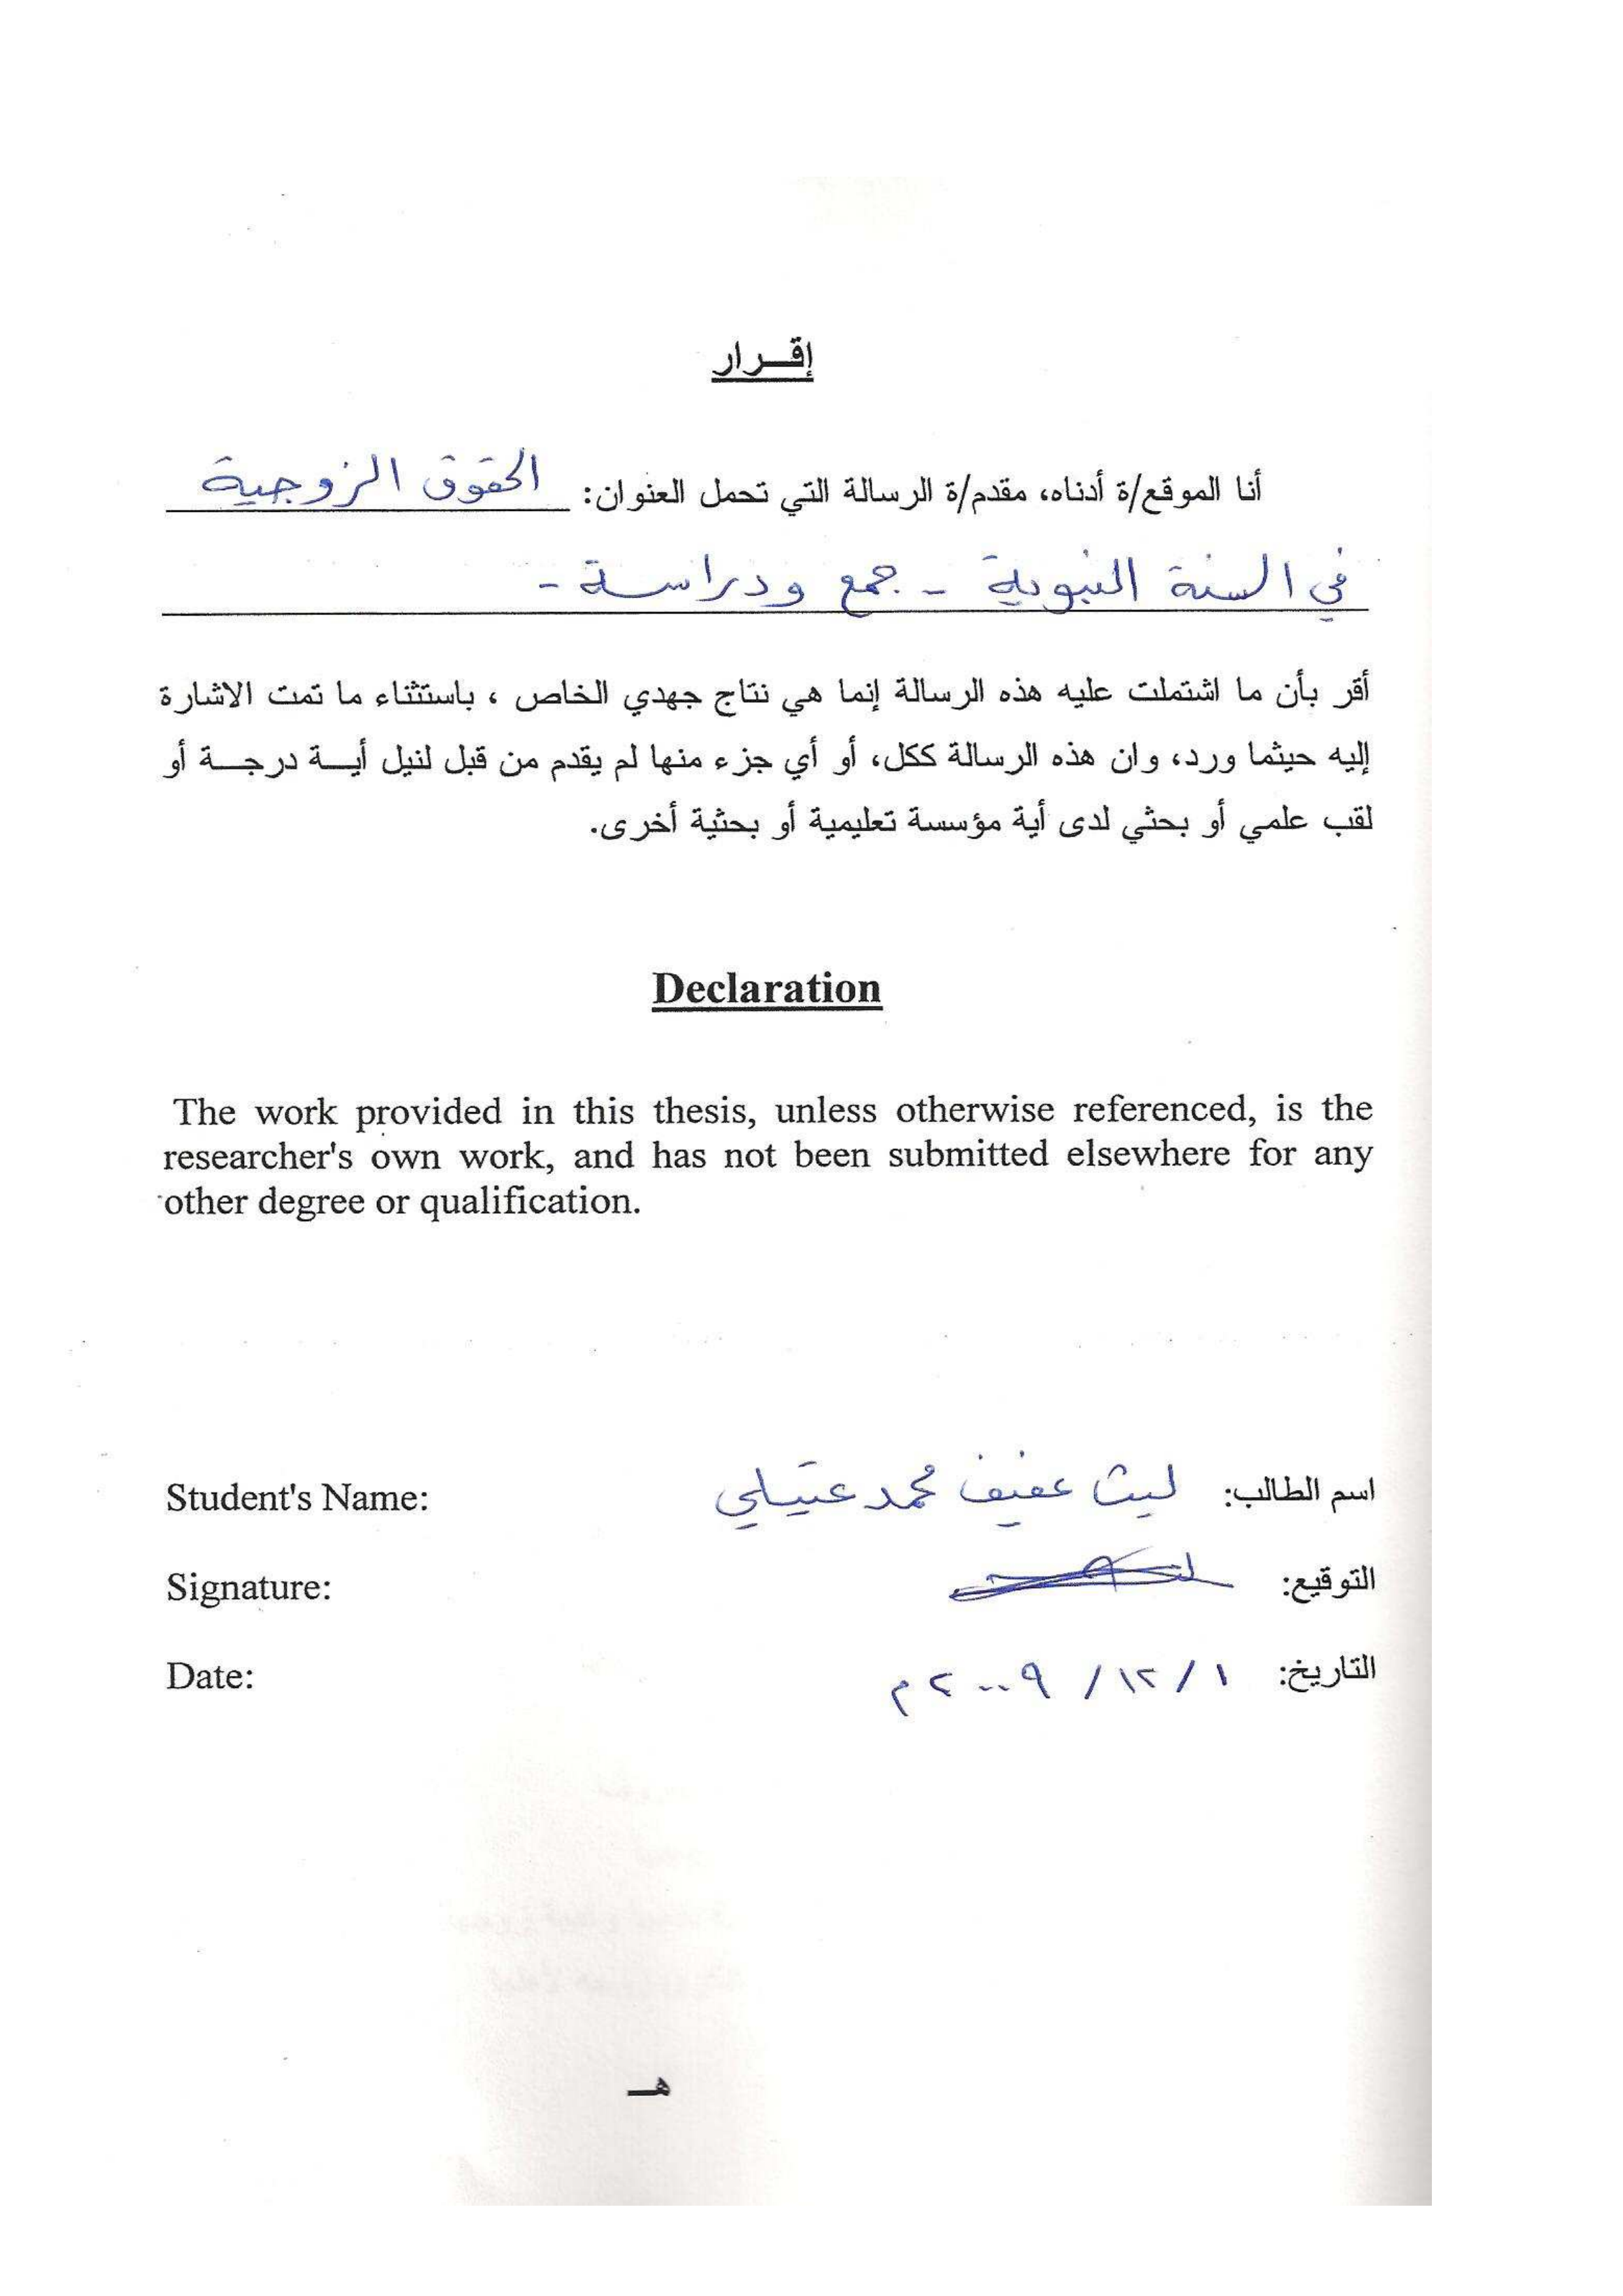 إقـــرار
أنا الموقع/ة أدناه، مقدم/ة الرسالة التي تحمل العنوان: الحقوق الزوجية
في السنة النبوية - جمع ودراسة -
أقر بأن ما اشتملت عليه هذه الرسالة إنما هي نتاج جهدي الخاص ، باستثناء ما تمت الاشارة
إليه حيثما ورد، وان هذه الرسالة ككل، أو أي جزء منها لم يقدم من قبل لنيل أيـــة درجـــة أو
لقب علمي أو بحثي لدى أية مؤسسة تعليمية أو بحثية أخرى.
Declaration
The work provided in this thesis, unless otherwise referenced, is the
researcher's own work, and has not been submitted elsewhere for any
other degree or qualification.
Student's Name: اسم الطالب: ليث عفيف محمد عتيلي
Signature: التوقيع:
Date: التاريخ: ١ / ١٢ / ٢٠٠٩ م
هـ